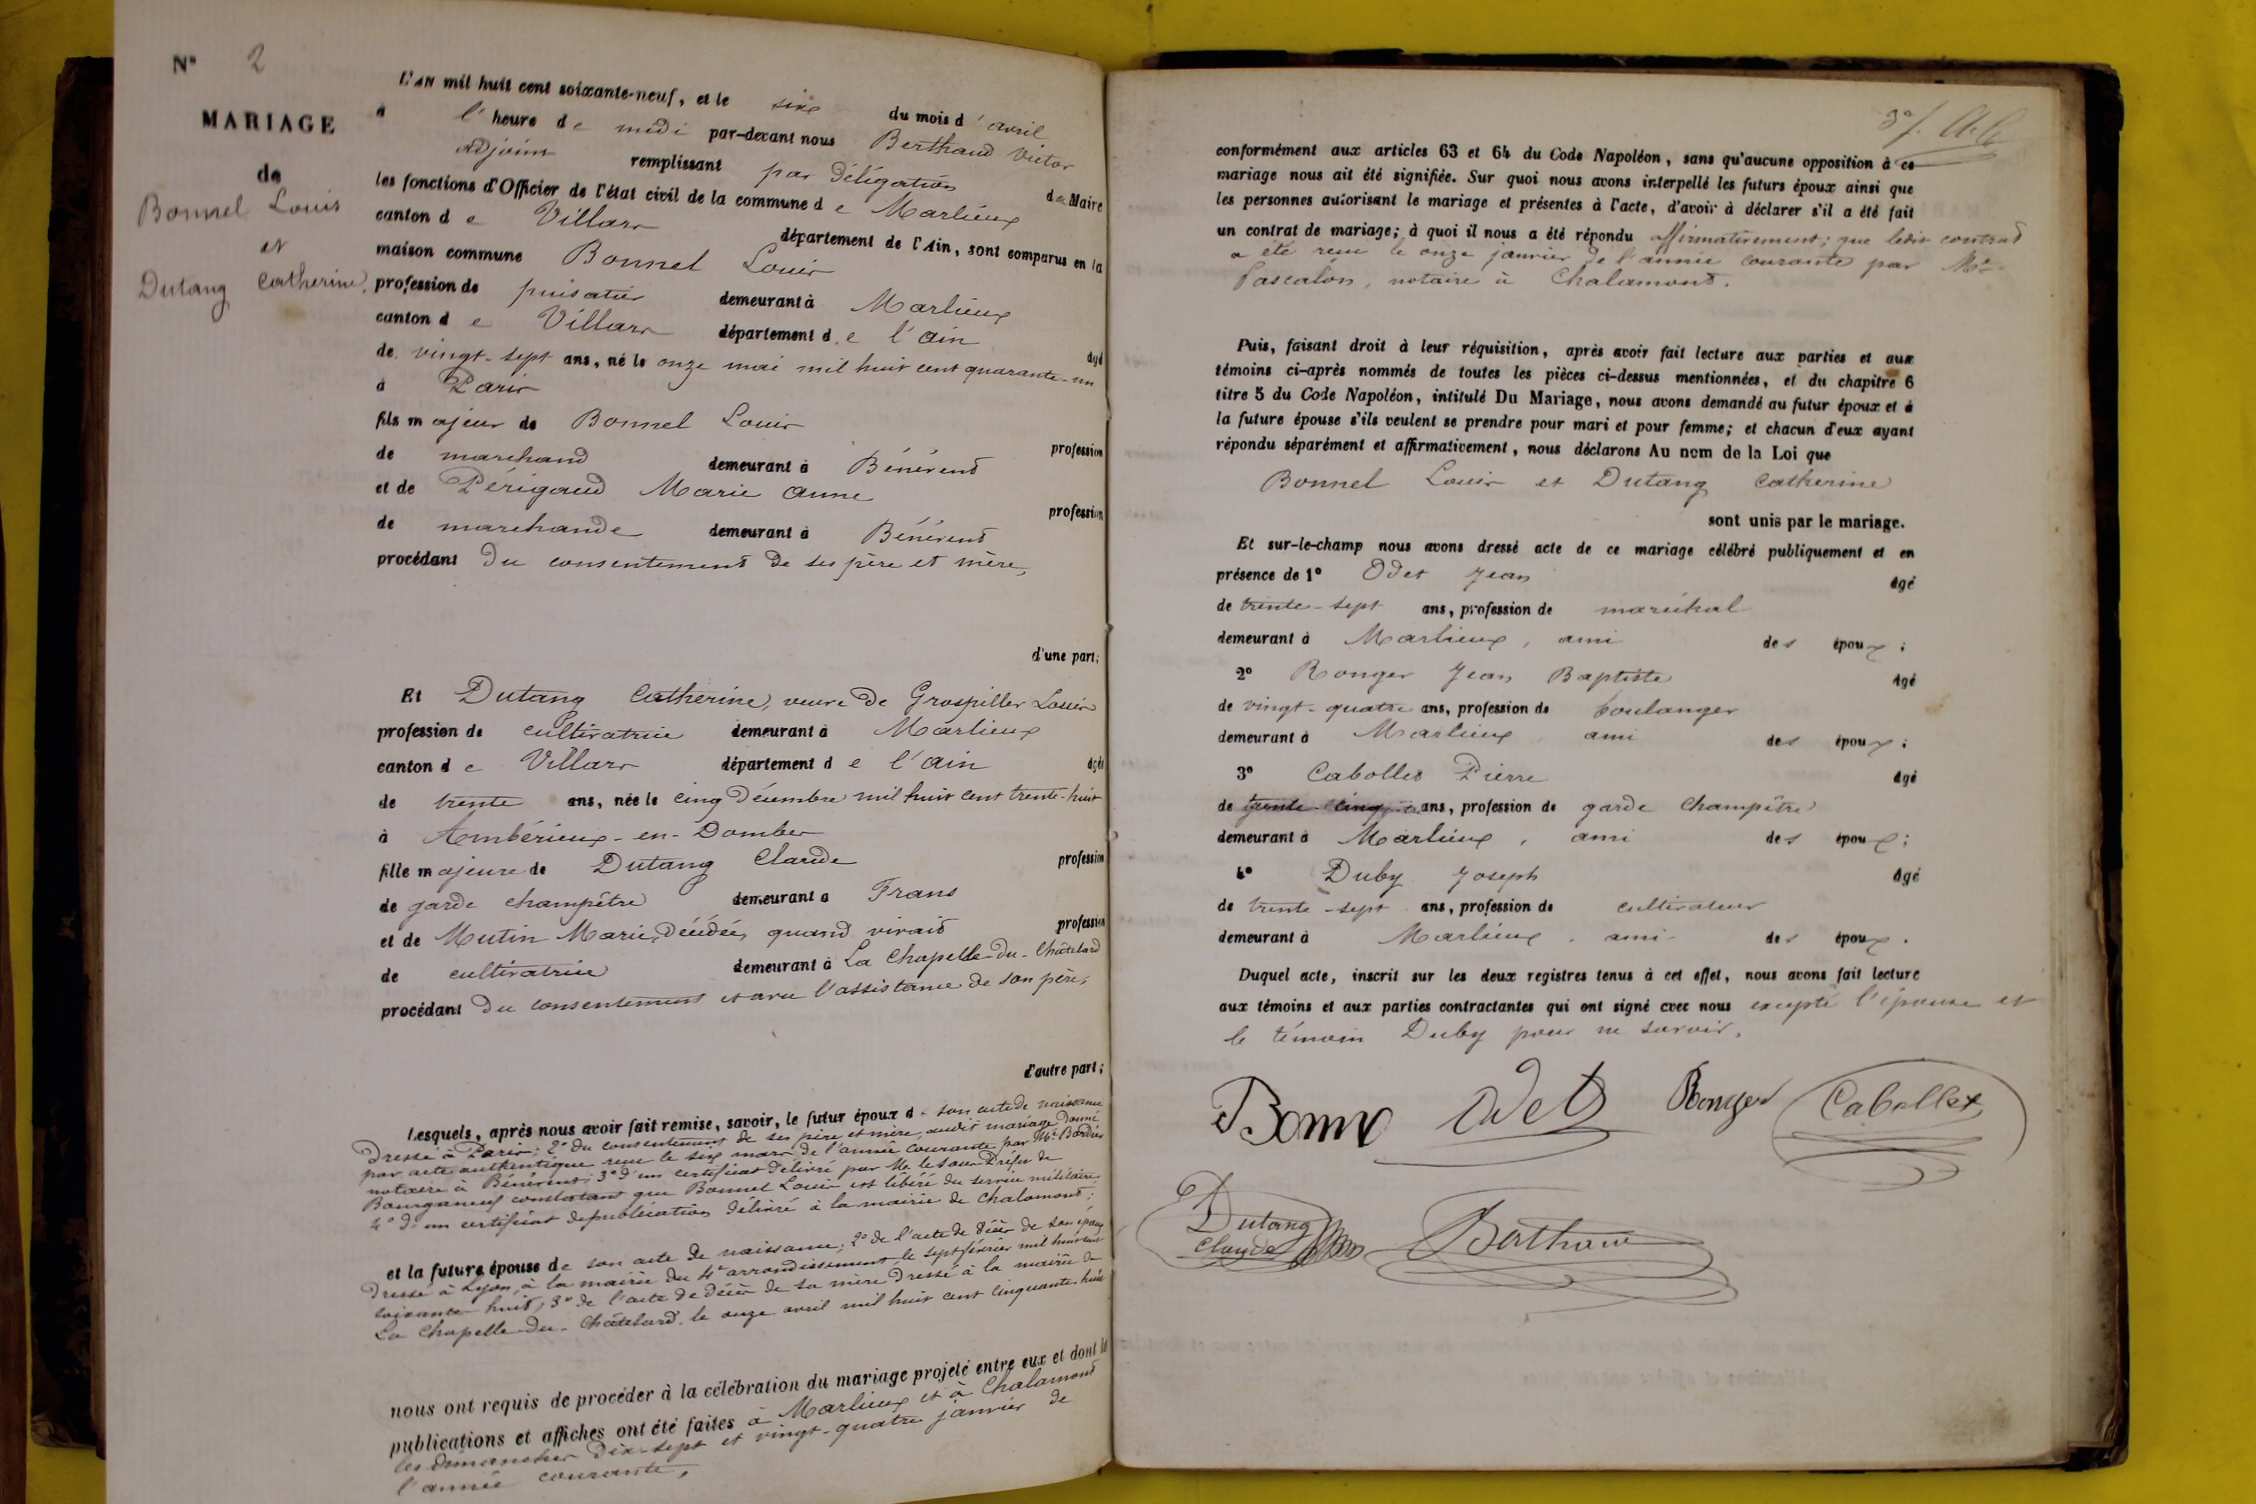 N° 2
MARIAGE
de
Bonnel Louis
et
Dutang Catherine.
L'AN mil huit cent soixante-neuf, et le six du mois d'avril
à l'heure de midi par-devant nous Berthaud Victor
adjoint remplissant par délégation de Maire
les fonctions d'Officier de l'état civil de la commune de Marlieux
canton de Villars département de l'Ain, sont comparus en la
maison commune Bonnel Louis
profession de puisatier demeurant à Marlieux
canton de Villars département de l'ain
âgé
de vingt-sept ans, né le onze mai mil huit cent quarante-un
à Paris
fils majeur de Bonnel Louis
profession
de marchand demeurant à Bénévent
et de Périgaud Marie Anne
profession
de marchande demeurant à Bénévent
procédant du consentement de ses père et mère,
d'une part;
Et Dutang Catherine, veuve de Grospiller Louis
profession de cultivatrice demeurant à Marlieux
canton de Villars département de l'ain âgée
de trente ans, née le cinq Décembre mil huit cent trente-huit
à Ambérieux-en-Dombes
fille majeure de Dutang Claude profession
de garde champêtre demeurant à Frans
et de Mutin Marie, décédée, quand vivait profession
de cultivatrice demeurant à La Chapelle-du-Châtelard
procédant du consentement et avec l'assistance de son père,
d'autre part;
Lesquels, après nous avoir fait remise, savoir, le futur époux d- son acte de naissance
dressé à Paris; 2° du consentement de ses père et mère, audit mariage donné
par acte authentique reçu le six mars de l'année courante par Me
notaire à Bénévent; 3° d'un certificat délivré par Mr le Sous-Préfet de
Bourganeuf constatant que Bonnel Louis est libéré du service militaire,
4° d'un certificat de publication délivré à la mairie de Chalamont;
et la future épouse de son acte de naissance; 2° de l'acte de décès de son époux
dressé à Lyon, à la mairie du 4e arrondissement, le sept février mil huit cent
soixante-huit, 3° de l'acte de décès de sa mère dressé à la mairie de
La Chapelle-du-Châtelard, le onze avril mil huit cent cinquante-huit
nous ont requis de procéder à la célébration du mariage projeté entre eux et dont les
publications et affiches ont été faites à Marlieux et à Chalamont
les dimanches dix-sept et vingt-quatre janvier de
l'année courante,
conformément aux articles 63 et 64 du Code Napoléon, sans qu'aucune opposition à ce
mariage nous ait été signifiée. Sur quoi nous avons interpellé les futurs époux ainsi que
les personnes autorisant le mariage et présentes à l'acte, d'avoir à déclarer s'il a été fait
un contrat de mariage; à quoi il nous a été répondu affirmativement; que ledit contrat
a été reçu le onze janvier de l'année courante par Me
Pascalon, notaire à Chalamont.
Puis, faisant droit à leur réquisition, après avoir fait lecture aux parties et aux
témoins ci-après nommés de toutes les pièces ci-dessus mentionnées, et du chapitre 6
titre 5 du Code Napoléon, intitulé Du Mariage, nous avons demandé au futur époux et à
la future épouse s'ils veulent se prendre pour mari et pour femme; et chacun d'eux ayant
répondu séparément et affirmativement, nous déclarons Au nom de la Loi que
Bonnel Louis et Dutang Catherine
sont unis par le mariage.
Et sur-le-champ nous avons dressé acte de ce mariage célébré publiquement et en
présence de 1° Odet Jean âgé
de trente-sept ans, profession de maréchal
demeurant à Marlieux, ami des époux;
2° Ronger Jean Baptiste âgé
de vingt-quatre ans, profession de boulanger
demeurant à Marlieux, ami des époux;
3° Cabollet Pierre âgé
de trente-cinq ans, profession de garde champêtre
demeurant à Marlieux, ami des époux;
4° Duby Joseph âgé
de trente-sept ans, profession de cultivateur
demeurant à Marlieux, ami des époux.
Duquel acte, inscrit sur les deux registres tenus à cet effet, nous avons fait lecture
aux témoins et aux parties contractantes qui ont signé avec nous excepté l'épouse et
le témoin Duby pour ne savoir.
Odet Ronger Cabollet
Dutang
Claude